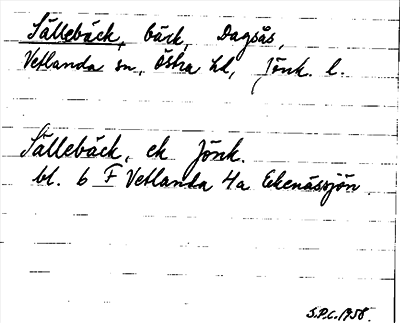 Sällebäck, bäck, Dagsås,
Vetlanda sn, Östra hd, Jönk. l.
Sällebäck, ek Jönk.
bl. 6 F Vetlanda 4a Ekenässjön
S.P.C. 1958.